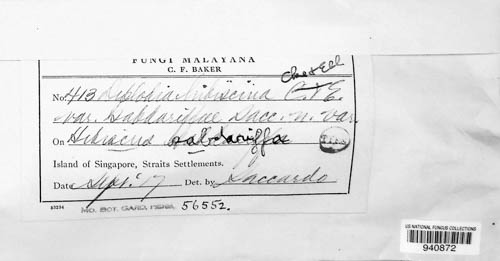 FUNGI MALAYANA
C. F. BAKER
Cke & Ell
No. 413 Diplodia hibiscina C. & E.
var. Sabdariffae Sacc. n. var.
On Hibiscus sabdariffa
Island of Singapore, Straits Settlements.
Date Sept. '17 Det. by Saccardo
53234
MO. BOT. GARD. HERB. 56552.
US NATIONAL FUNGUS COLLECTIONS
940872